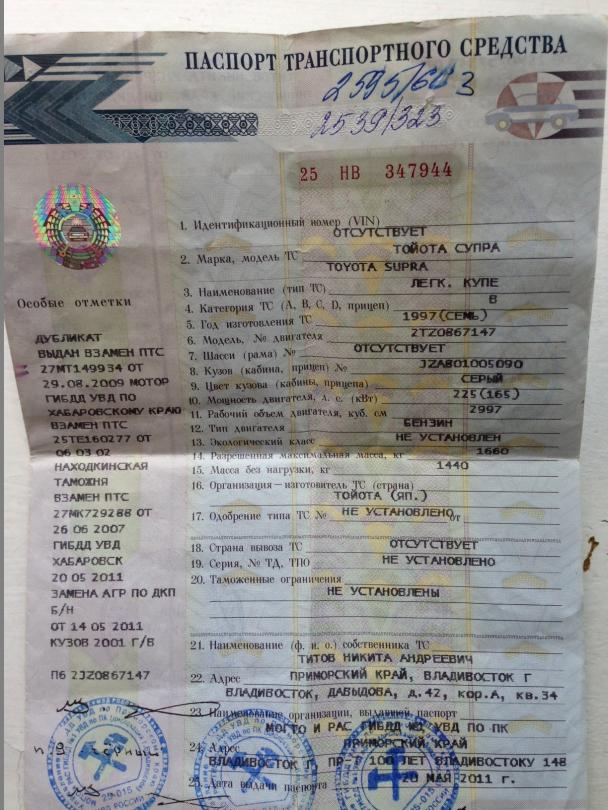 ПАСПОРТ ТРАНСПОРТНОГО СРЕДСТВА
2539/323
25 НВ 347944
1. Идентификационный номер (VIN) ОТСУТСТВУЕТ
2. Марка, модель ТС ТОЙОТА СУПРА
TOYOTA SUPRA
3. Наименование (тип ТС) ЛЕГК. КУПЕ
4. Категория ТС (A, B, C, D, прицеп) B
5. Год изготовления ТС 1997(СЕМЬ)
6. Модель, № двигателя 2TZ0867147
7. Шасси (рама) № ОТСУТСТВУЕТ
8. Кузов (кабина, прицеп) № JZA801005090
9. Цвет кузова (кабины, прицепа) СЕРЫЙ
10. Мощность двигателя, л. с. (кВт) 225(165)
11. Рабочий объем двигателя, куб. см 2997
12. Тип двигателя БЕНЗИН
13. Экологический класс НЕ УСТАНОВЛЕН
14. Разрешенная максимальная масса, кг 1660
15. Масса без нагрузки, кг 1440
16. Организация – изготовитель ТС (страна)
ТОЙОТА (ЯП.)
17. Одобрение типа ТС № НЕ УСТАНОВЛЕНО от
18. Страна вывоза ТС ОТСУТСТВУЕТ
19. Серия, № ТД, ТПО НЕ УСТАНОВЛЕНО
20. Таможенные ограничения
НЕ УСТАНОВЛЕНЫ
21. Наименование (ф. и. о.) собственника ТС
ТИТОВ НИКИТА АНДРЕЕВИЧ
22. Адрес ПРИМОРСКИЙ КРАЙ, ВЛАДИВОСТОК Г
ВЛАДИВОСТОК, ДАВЫДОВА, д.42, кор.А, кв.34
23. Наименование организации, выдавшей паспорт
МОГТО И РАС ГИБДД УВД ПО ПК
24. Адрес ПРИМОРСКИЙ КРАЙ
ВЛАДИВОСТОК Г, ПР-Т 100 ЛЕТ ВЛАДИВОСТОКУ 148
25. Дата выдачи паспорта 20 МАЯ 2011 г.
Особые отметки
ДУБЛИКАТ
ВЫДАН ВЗАМЕН ПТС
27МТ149934 ОТ
29.08.2009 МОТОР
ГИБДД УВД ПО
ХАБАРОВСКОМУ КРАЮ
ВЗАМЕН ПТС
25ТЕ160277 ОТ
06 03 02
НАХОДКИНСКАЯ
ТАМОЖНЯ
ВЗАМЕН ПТС
27МК729288 ОТ
26 06 2007
ГИБДД УВД
ХАБАРОВСК
20 05 2011
ЗАМЕНА АГР ПО ДКП
Б/Н
ОТ 14 05 2011
КУЗОВ 2001 Г/В
П6 2JZ0867147